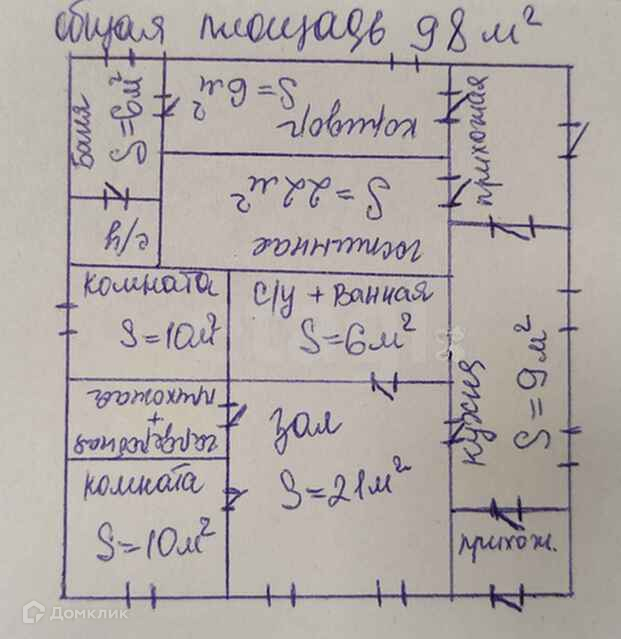 общая площадь 98 м²
баня
S=6м²
S=6м²
коридор
прихожая
с/у
S=22м²
гостинная
комната
S=10м²
с/у + ванная
S=6м²
кухня
S=9м²
прихожая
+
гардеробная
зал
S=21м²
комната
S=10м²
прихож.
Домклик